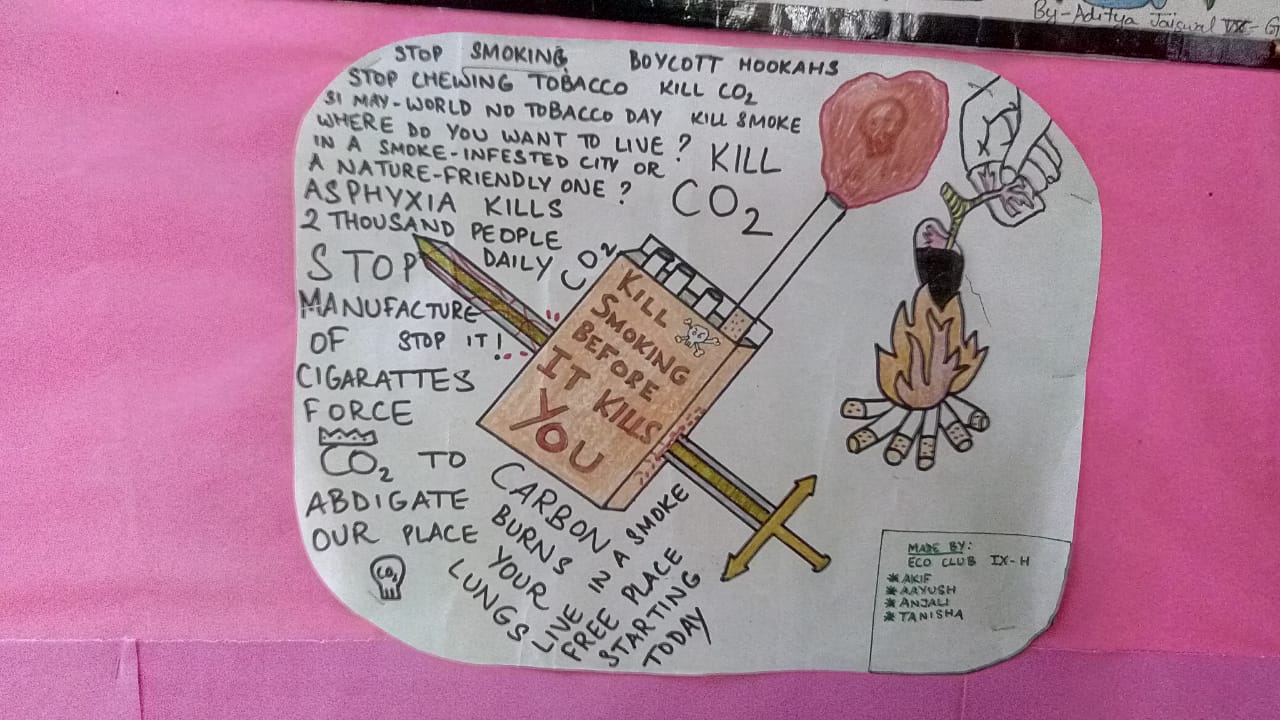 By-Aditya Jaiswal IX-G
STOP SMOKING
BOYCOTT HOOKAHS
STOP CHEWING TOBACCO
KILL CO2
31 MAY-WORLD NO TOBACCO DAY
KILL SMOKE
WHERE DO YOU WANT TO LIVE?
IN A SMOKE-INFESTED CITY OR
A NATURE-FRIENDLY ONE?
KILL
CO2
ASPHYXIA KILLS
2 THOUSAND PEOPLE
DAILY
CO2
STOP
MANUFACTURE
OF
STOP IT!
CIGARATTES
FORCE
CO2 TO
ABDIGATE
OUR PLACE
CO2
KILL
SMOKING
BEFORE
IT KILLS
YOU
CARBON
BURNS
YOUR
LUNGS
LIVE IN A SMOKE
FREE PLACE
STARTING
TODAY
MADE BY:
ECO CLUB IX-H
* AKIF
* AAYUSH
* ANJALI
* TANISHA